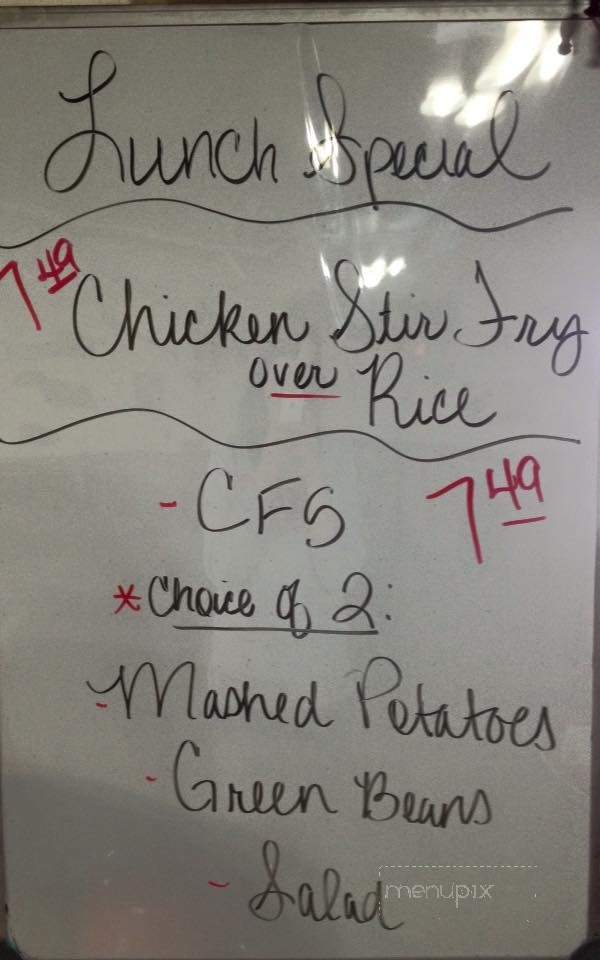 Lunch Special
7 49 Chicken Stir Fry
over Rice
- CFS 7 49
* Choice of 2:
- Mashed Potatoes
- Green Beans
- Salad
menupix